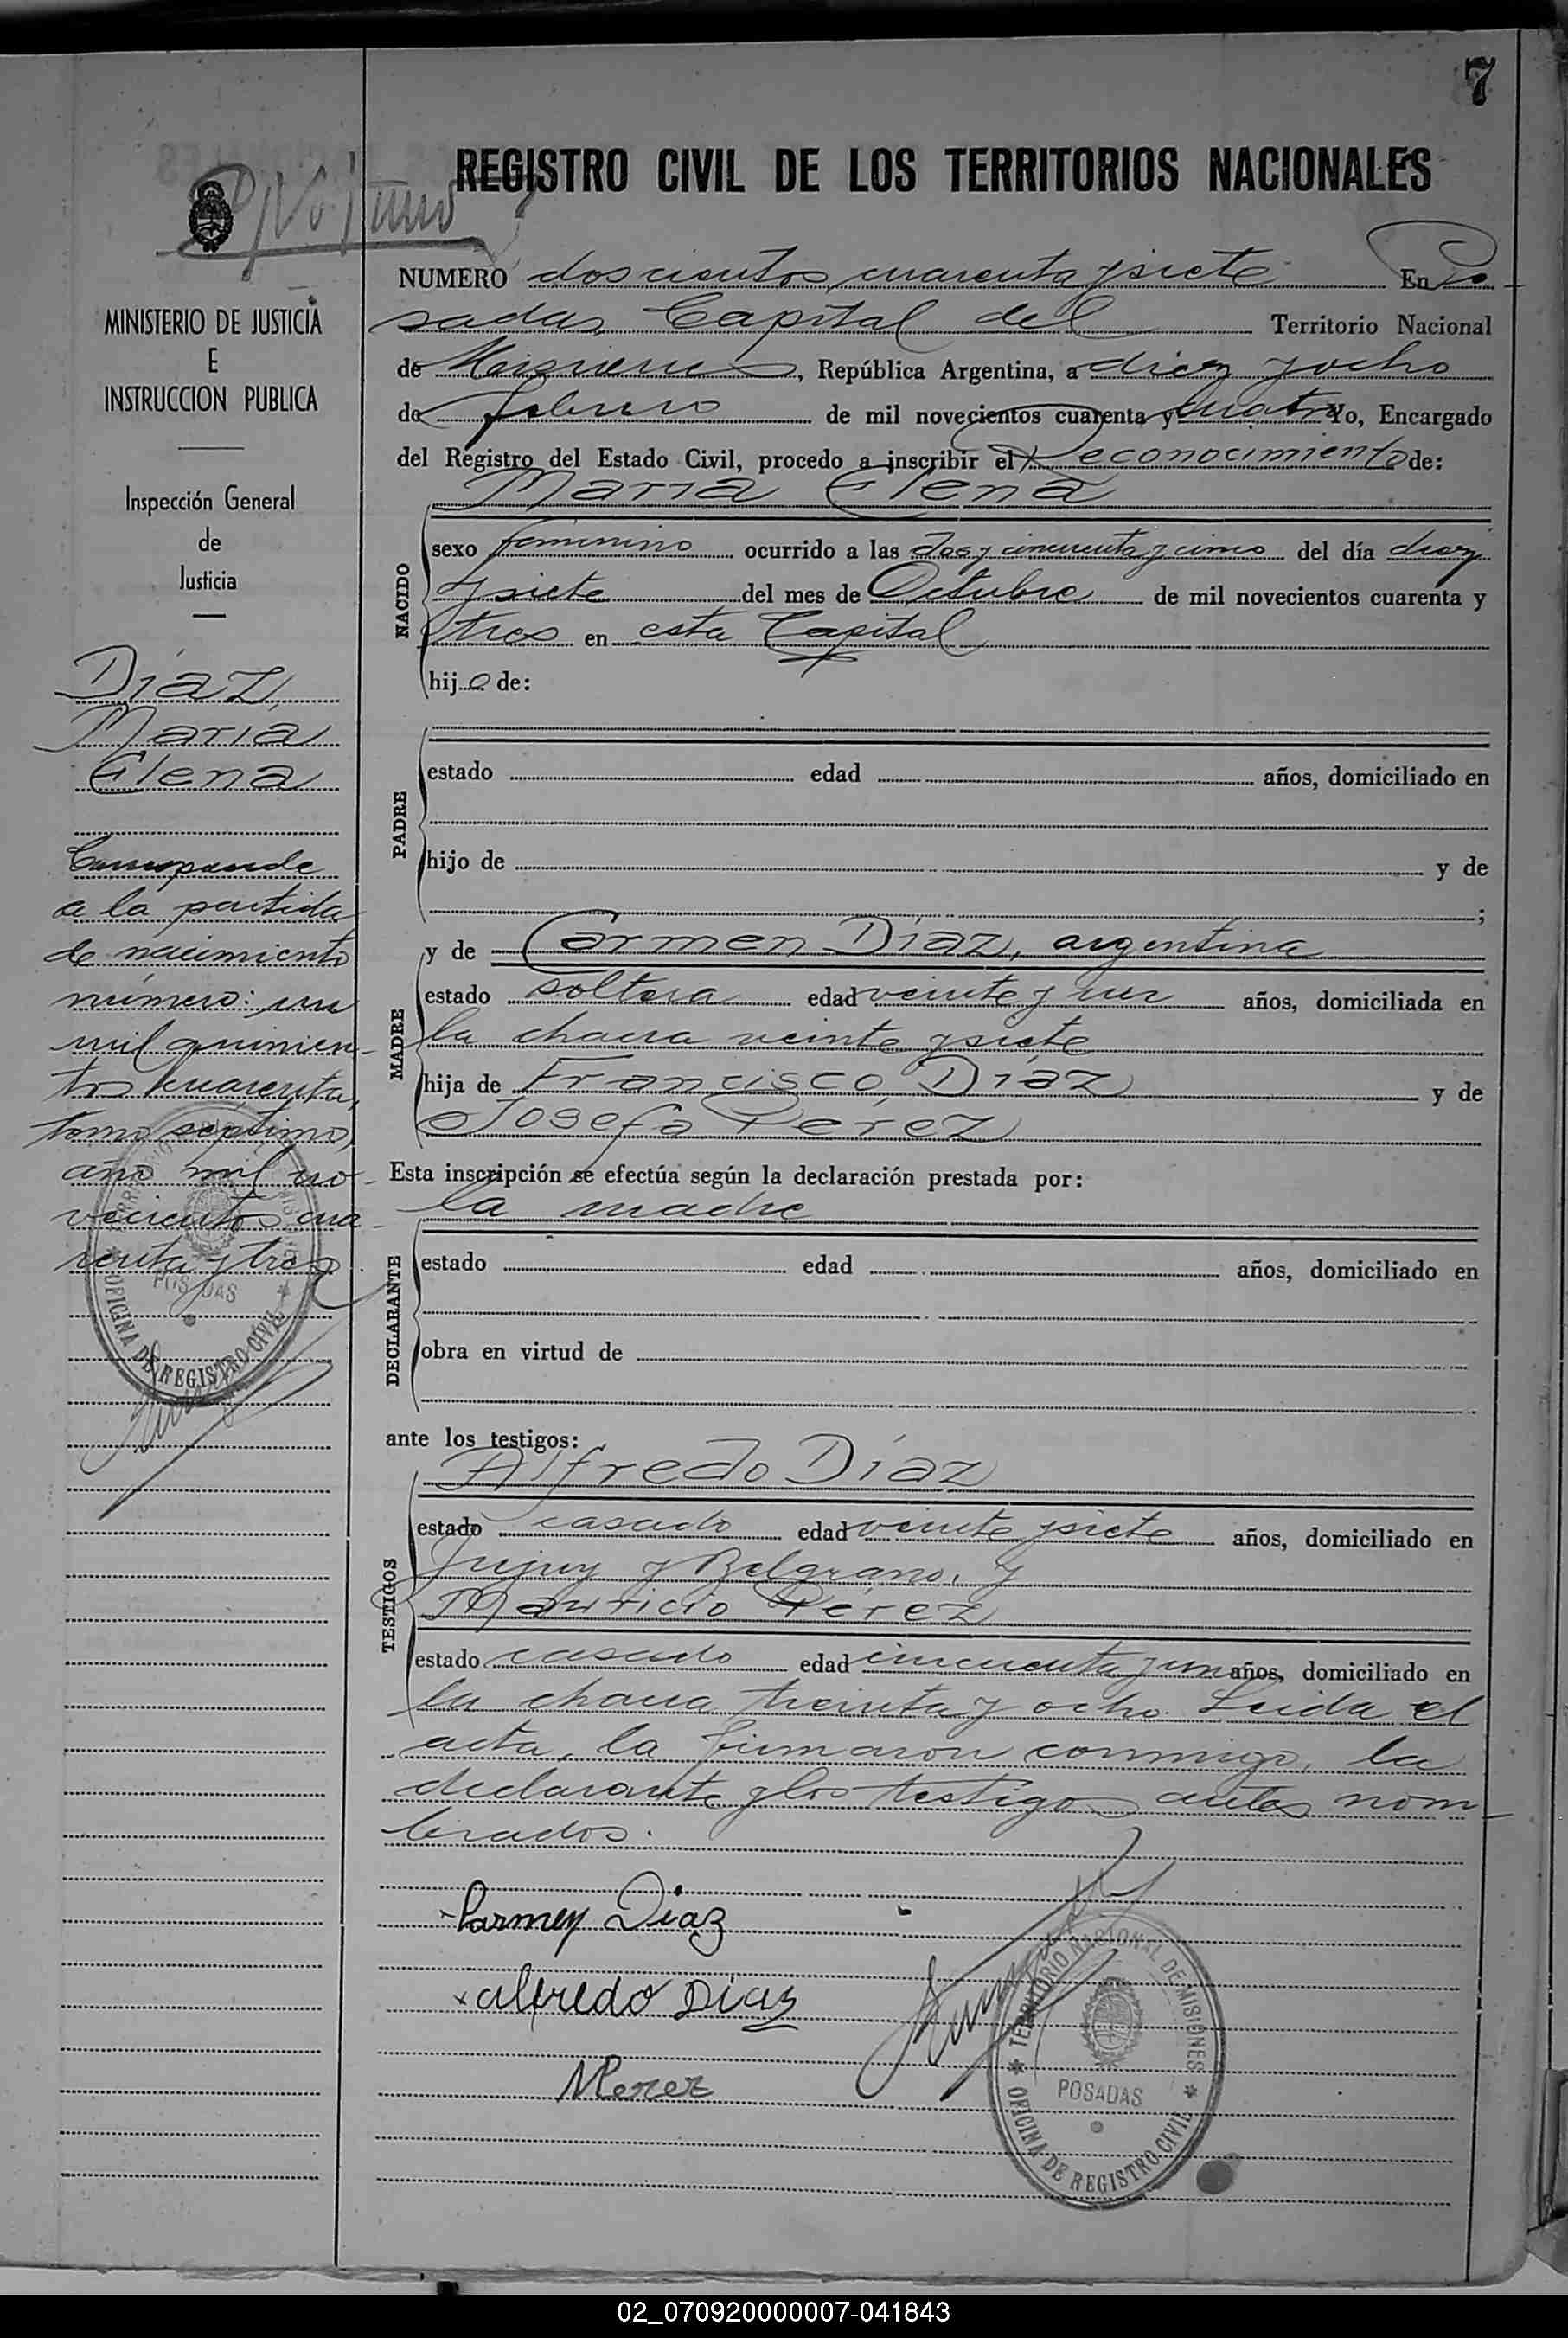 7
REGISTRO CIVIL DE LOS TERRITORIOS NACIONALES
NUMERO doscientos cuarenta y siete En Po-
sadas Capital del Territorio Nacional
de Misiones, República Argentina, a diez y ocho
de febrero de mil novecientos cuarenta y cuatro Yo, Encargado
del Registro del Estado Civil, procedo a inscribir el Reconocimiento de:
María Elena
NACIDO
sexo femenino ocurrido a las dos y cincuenta y cinco del día diez
y siete del mes de Octubre de mil novecientos cuarenta y
tres en esta Capital
hija de:
PADRE
estado edad años, domiciliado en
hijo de y de
;
y de Carmen Díaz, argentina
MADRE
estado soltera edad veinte y años, domiciliada en
la chacra veinte y siete
hija de Francisco Díaz y de
Josefa Pérez
Esta inscripción se efectúa según la declaración prestada por:
la madre
DECLARANTE
estado edad años, domiciliado en
obra en virtud de
ante los testigos:
Alfredo Díaz
TESTIGOS
estado casado edad veinte y siete años, domiciliado en
Jujuy y Belgrano, y
Mauricio Pérez
estado casado edad cincuenta y un años, domiciliado en
la chacra treinta y ocho. Leída el
acta, la firmaron conmigo, la
declarante y los testigos antes nom-
brados.
Carmen Diaz
x alfredo Diaz
MPerez
TERRITORIO NACIONAL DE MISIONES
POSADAS
OFICINA DE REGISTRO CIVIL
MINISTERIO DE JUSTICIA
E
INSTRUCCION PUBLICA
Inspección General
de
Justicia
Díaz,
María
Elena
Corresponde
a la partida
de nacimiento
número: un
mil quinien-
tos cuarenta,
tomo septimo,
año mil no-
vecientos cua-
renta y tres
POSADAS
OFICINA DE REGISTRO CIVIL
02_070920000007-041843